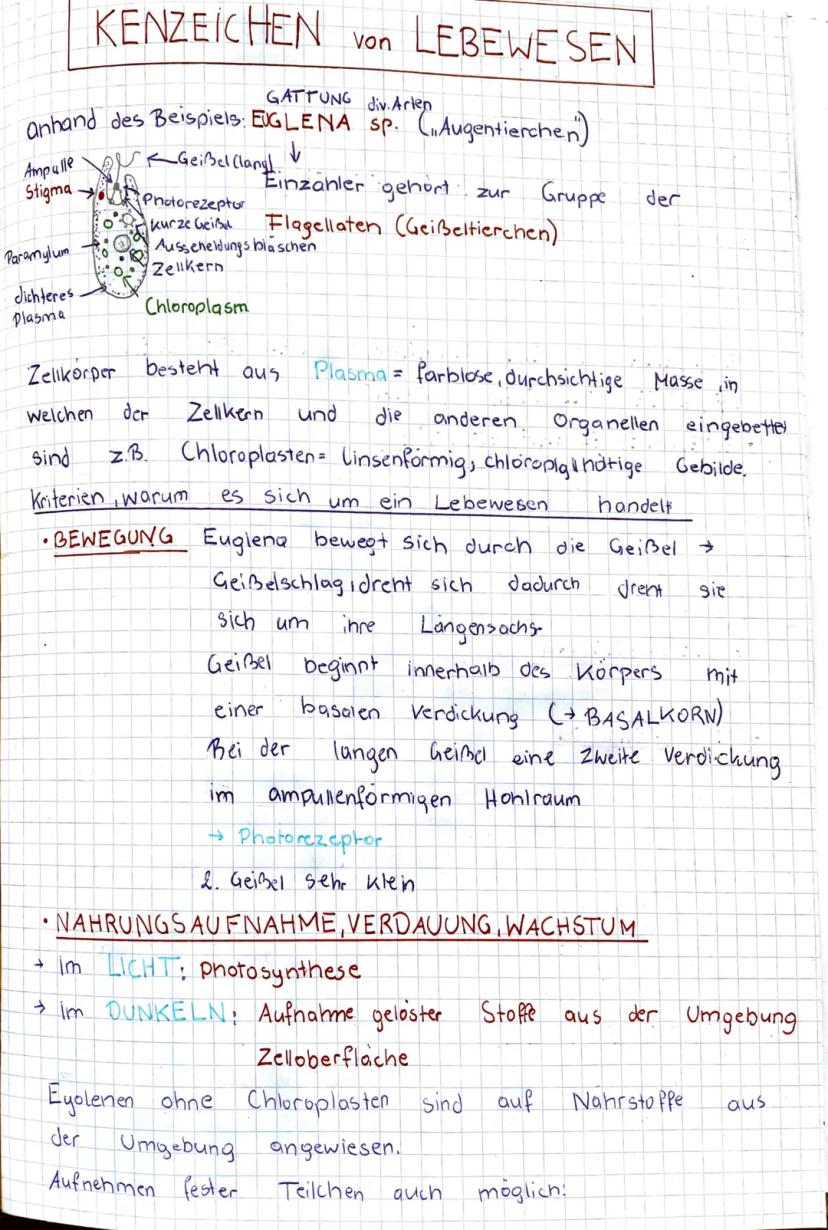 KENZEICHEN von LEBEWESEN
GATTUNG div. Arten
anhand des Beispiels: EUGLENA sp. („Augentierchen")
Ampulle
Geißel (lang)
Stigma
Einzahler gehört zur Gruppe der
Photorezeptor
kurze Geißel
Flagellaten (Geißeltierchen)
Ausscheidungsbläschen
Paramylum
Zellkern
dichteres
Plasma
Chloroplasm
Zellkörper besteht aus Plasma = farblose, durchsichtige Masse, in
welchen der Zellkern und die anderen Organellen eingebettet
sind z.B. Chloroplasten = linsenförmig, Gebilde.
Kriterien, warum es sich um ein Lebewesen handelt
• BEWEGUNG Euglena bewegt sich durch die Geißel →
Geißelschlag, dreht sich dadurch dreht sie
sich um ihre Längensachs-
Geißel beginnt innerhalb des Körpers mit
einer basalen Verdickung (→ BASALKORN)
Bei der langen Geißel eine zweite Verdickung
im ampullenförmigen Hohlraum
→ Photorezeptor
2. Geißel sehr klein
• NAHRUNGSAUFNAHME, VERDAUUNG, WACHSTUM
→ im LICHT: photosynthese
→ im DUNKELN: Aufnahme gelöster Stoffe aus der Umgebung
Zelloberfläche
Eyolenen ohne Chloroplasten sind auf Nährstoffe aus
der Umgebung angewiesen.
Aufnehmen fester Teilchen auch möglich: